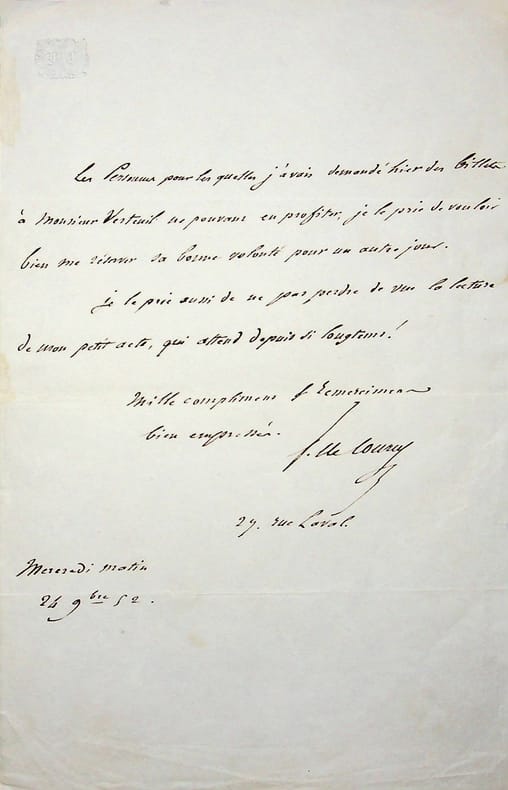 Les Personnes pour lesquelles j'avais demandé hier des billets
à Monsieur Verteuil ne pouvant en profiter, je le prie de vouloir
bien me réserver sa bonne volonté pour un autre jour.
je le prie aussi de ne pas perdre de vue la lecture
de mon petit acte, qui attend depuis si longtems!
Mille compliments & remerciments
bien empressés.
f. de Courcy
27. rue Laval.
Mercredi matin
24 9bre 52.